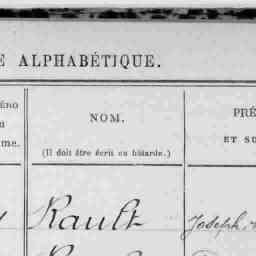 E ALPHABÉTIQUE.
NOM.
PRÉ
(Il doit être écrit en bâtarde.)
ET SU
me.
Rault
Joseph